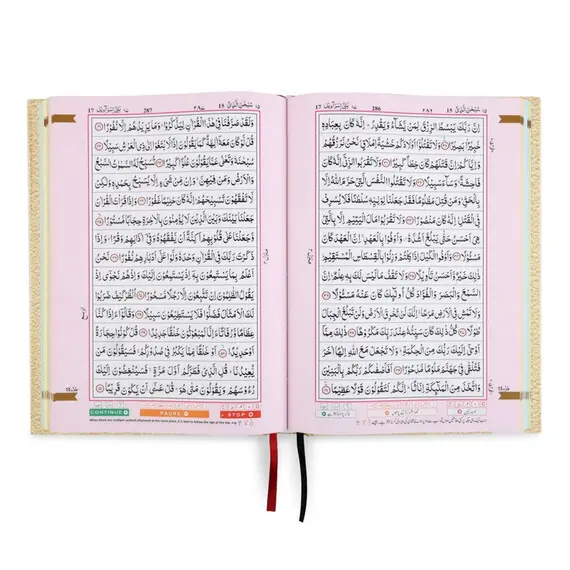 17 بَنِیْٓ اِسْرَآءِیْلَ ١٧ 286 ٢٨٦ 15 سُبْحٰنَ الَّذِیْٓ ١٥
اِنَّ رَبَّكَ یَبْسُطُ الرِّزْقَ لِمَنْ یَّشَآءُ وَیَقْدِرُ ؕ اِنَّهٗ كَانَ بِعِبَادِهٖ
خَبِیْرًۢا بَصِیْرًا ﴿۳۰﴾ وَلَا تَقْتُلُوْۤا اَوْلَادَكُمْ خَشْیَةَ اِمْلَاقٍ ؕ نَحْنُ نَرْزُقُهُمْ
وَاِیَّاكُمْ ؕ اِنَّ قَتْلَهُمْ كَانَ خِطْاً كَبِیْرًا ﴿۳۱﴾ وَلَا تَقْرَبُوا الزِّنٰۤی اِنَّهٗ كَانَ
فَاحِشَةً ؕ وَسَآءَ سَبِیْلًا ﴿۳۲﴾ وَلَا تَقْتُلُوا النَّفْسَ الَّتِیْ حَرَّمَ اللّٰهُ اِلَّا
بِالْحَقِّ ؕ وَمَنْ قُتِلَ مَظْلُوْمًا فَقَدْ جَعَلْنَا لِوَلِیِّهٖ سُلْطٰنًا فَلَا یُسْرِفْ
فِّی الْقَتْلِ ؕ اِنَّهٗ كَانَ مَنْصُوْرًا ﴿۳۳﴾ وَلَا تَقْرَبُوْا مَالَ الْیَتِیْمِ اِلَّا بِالَّتِیْ
هِیَ اَحْسَنُ حَتّٰی یَبْلُغَ اَشُدَّهٗ ۪ وَاَوْفُوْا بِالْعَهْدِ ۚ اِنَّ الْعَهْدَ كَانَ
مَسْـُٔوْلًا ﴿۳۴﴾ وَاَوْفُوا الْكَیْلَ اِذَا كِلْتُمْ وَزِنُوْا بِالْقِسْطَاسِ الْمُسْتَقِیْمِ ؕ
ذٰلِكَ خَیْرٌ وَّاَحْسَنُ تَاْوِیْلًا ﴿۳۵﴾ وَلَا تَقْفُ مَا لَیْسَ لَكَ بِهٖ عِلْمٌ ؕ اِنَّ
السَّمْعَ وَالْبَصَرَ وَالْفُؤَادَ كُلُّ اُولٰٓئِكَ كَانَ عَنْهُ مَسْـُٔوْلًا ﴿۳۶﴾
وَلَا تَمْشِ فِی الْاَرْضِ مَرَحًا ۚ اِنَّكَ لَنْ تَخْرِقَ الْاَرْضَ وَلَنْ تَبْلُغَ الْجِبَالَ
طُوْلًا ﴿۳۷﴾ كُلُّ ذٰلِكَ كَانَ سَیِّئُهٗ عِنْدَ رَبِّكَ مَكْرُوْهًا ﴿۳۸﴾ ذٰلِكَ مِمَّاۤ
اَوْحٰۤی اِلَیْكَ رَبُّكَ مِنَ الْحِكْمَةِ ؕ وَلَا تَجْعَلْ مَعَ اللّٰهِ اِلٰهًا اٰخَرَ
فَتُلْقٰی فِیْ جَهَنَّمَ مَلُوْمًا مَّدْحُوْرًا ﴿۳۹﴾ اَفَاَصْفٰىكُمْ رَبُّكُمْ بِالْبَنِیْنَ
وَاتَّخَذَ مِنَ الْمَلٰٓئِكَةِ اِنَاثًا ؕ اِنَّكُمْ لَتَقُوْلُوْنَ قَوْلًا عَظِیْمًا ﴿۴۰﴾
17 بَنِیْٓ اِسْرَآءِیْلَ ١٧ 287 ٢٨٧ 15 سُبْحٰنَ الَّذِیْٓ ١٥
وَلَقَدْ صَرَّفْنَا فِیْ هٰذَا الْقُرْاٰنِ لِیَذَّكَّرُوْا ؕ وَمَا یَزِیْدُهُمْ اِلَّا نُفُوْرًا ﴿۴۱﴾
قُلْ لَّوْ كَانَ مَعَهٗۤ اٰلِهَةٌ كَمَا یَقُوْلُوْنَ اِذًا لَّابْتَغَوْا اِلٰی ذِی الْعَرْشِ سَبِیْلًا ﴿۴۲﴾
سُبْحٰنَهٗ وَتَعٰلٰی عَمَّا یَقُوْلُوْنَ عُلُوًّا كَبِیْرًا ﴿۴۳﴾ تُسَبِّحُ لَهُ السَّمٰوٰتُ السَّبْعُ
وَالْاَرْضُ وَمَنْ فِیْهِنَّ ؕ وَاِنْ مِّنْ شَیْءٍ اِلَّا یُسَبِّحُ بِحَمْدِهٖ وَلٰكِنْ
لَّا تَفْقَهُوْنَ تَسْبِیْحَهُمْ ؕ اِنَّهٗ كَانَ حَلِیْمًا غَفُوْرًا ﴿۴۴﴾ وَاِذَا قَرَاْتَ الْقُرْاٰنَ
جَعَلْنَا بَیْنَكَ وَبَیْنَ الَّذِیْنَ لَا یُؤْمِنُوْنَ بِالْاٰخِرَةِ حِجَابًا مَّسْتُوْرًا ﴿۴۵﴾
وَّجَعَلْنَا عَلٰی قُلُوْبِهِمْ اَكِنَّةً اَنْ یَّفْقَهُوْهُ وَفِیْۤ اٰذَانِهِمْ وَقْرًا ؕ وَاِذَا
ذَكَرْتَ رَبَّكَ فِی الْقُرْاٰنِ وَحْدَهٗ وَلَّوْا عَلٰۤی اَدْبَارِهِمْ نُفُوْرًا ﴿۴۶﴾ نَحْنُ
اَعْلَمُ بِمَا یَسْتَمِعُوْنَ بِهٖۤ اِذْ یَسْتَمِعُوْنَ اِلَیْكَ وَاِذْ هُمْ نَجْوٰۤی اِذْ
یَقُوْلُ الظّٰلِمُوْنَ اِنْ تَتَّبِعُوْنَ اِلَّا رَجُلًا مَّسْحُوْرًا ﴿۴۷﴾ اُنْظُرْ كَیْفَ ضَرَبُوْا
لَكَ الْاَمْثَالَ فَضَلُّوْا فَلَا یَسْتَطِیْعُوْنَ سَبِیْلًا ﴿۴۸﴾ وَقَالُوْۤا ءَاِذَا كُنَّا
عِظَامًا وَّرُفَاتًا ءَاِنَّا لَمَبْعُوْثُوْنَ خَلْقًا جَدِیْدًا ﴿۴۹﴾ قُلْ كُوْنُوْا حِجَارَةً
اَوْ حَدِیْدًا ﴿۵۰﴾ اَوْ خَلْقًا مِّمَّا یَكْبُرُ فِیْ صُدُوْرِكُمْ ۚ فَسَیَقُوْلُوْنَ مَنْ
یُّعِیْدُنَا ؕ قُلِ الَّذِیْ فَطَرَكُمْ اَوَّلَ مَرَّةٍ ۚ فَسَیُنْغِضُوْنَ اِلَیْكَ
رُءُوْسَهُمْ وَیَقُوْلُوْنَ مَتٰی هُوَ ؕ قُلْ عَسٰۤی اَنْ یَّكُوْنَ قَرِیْبًا ﴿۵۱﴾
CONTINUE PAUSE STOP